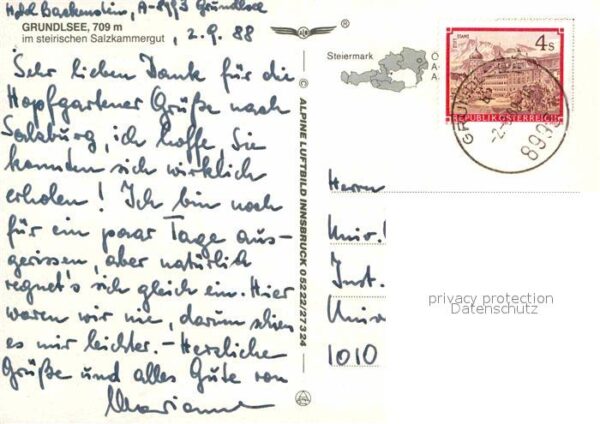 Hotel Backenstein, A-8993 Grundlsee
GRUNDLSEE, 709 m
im steirischen Salzkammergut
2.9.88
Sehr lieben Dank für die
Hopfgartener Grüße nach
Salzburg, ich hoffe, Sie
konnten sich wirklich
erholen! Ich bin noch
für ein paar Tage aus-
gerissen, aber natürlich
regnet's sich gleich ein. Hier
waren wir nie, darum schien
es mir leichter. - Herzliche
Grüße und alles Gute von
Marianne
© ALPINE LUFTBILD INNSBRUCK 0 52 22/27 3 24
Steiermark
Ö
A-
A.
STAMS
4 S
REPUBLIK ÖSTERREICH
8993
Herrn
Univ.
Inst.
Univ
1010
privacy protection
Datenschutz